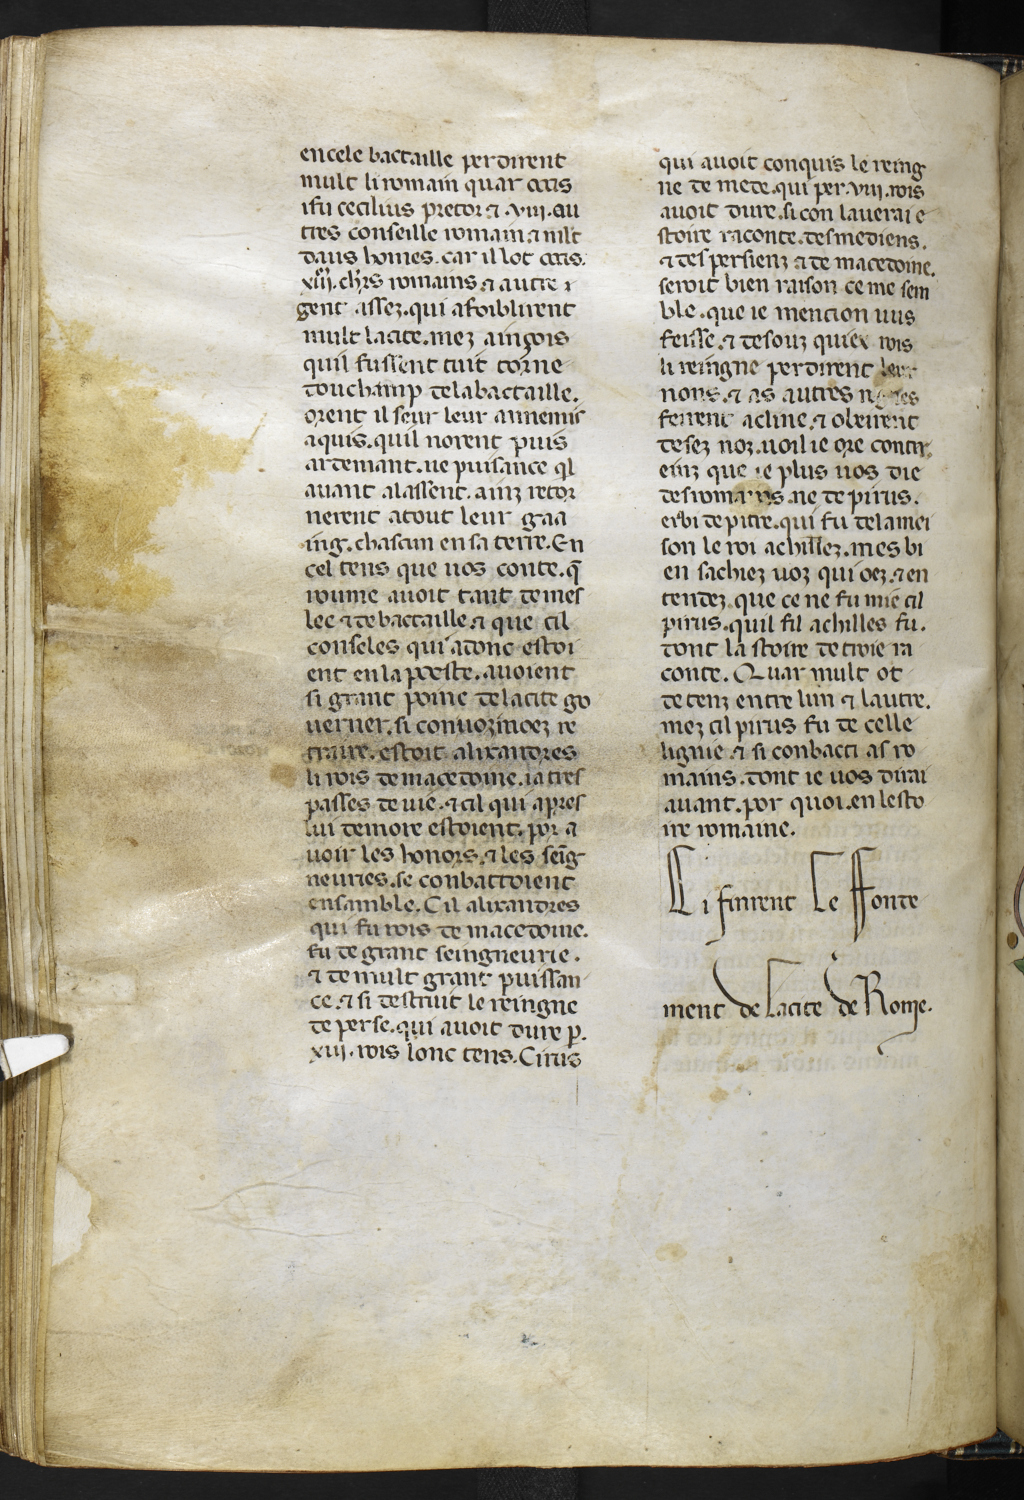 en cele bactaille perdirent
mult li romain quar ocis
i fu cecilius pretor ⁊ .viii. au
tres conseille romain ⁊ mlt
daus homes. car il lot ocis.
xiiii. chrs romains ⁊ autre i
gent assez. qui afoiblirent
mult la cite. mez aincois
quil fussent tuit torne
dou champ de la bactaille.
orent il seur leur annemis
aquis. quil norent puis
ardemant. ne puisance ql
auant alassent. ainz retor
nerent atout leur gaa
ing. chascun en sa terre. En
cel tens que uos conte. q̄
roume auoit tant de mes
lee ⁊ de bactaille. ⁊ que cil
conseles qui adonc estoi
ent en la poeste. auoient
si grant poine de la cite go
uerner. si con uoz moez re
traire. estoit alixandres
li rois de macedoine. ia tres
passes de uie. ⁊ cil qui apres
lui demore estoient. por a
uoir les honors. ⁊ les seig
neuries. se conbattoient
ensamble. Cil alixandres
qui fu rois de macedoine.
fu de grant seingneurie.
⁊ de mult grant puissan
ce. ⁊ si destruit le reingne
de perse. qui auoit dure p.
xiii. rois lonc tens. Cirus
qui auoit conquis le reing
ne de mede. qui per .viii. rois
auoit dure. si con la uerai e
stoire raconte. des mediens.
⁊ des persienz ⁊ de macedoine.
seroit bien raison ce me sem
ble. que ie mention uus
feisse. ⁊ desouz quiex rois
li reingne perdirent leur
nons. ⁊ as autres
ferrent acline. ⁊ obeirent
desez noz. uoil ie ore contr
einz que ie plus uos die
des romains. ne de pirus.
erbi de pirre. qui fu de la mei
son le roi achillez. mes bi
en sachiez uoz qui oez. ⁊ en
tendez. que ce ne fu mie cil
pirus. quil fil achilles fu.
dont la stoire de troie ra
conte. Quar mult ot
de tenz entre lun ⁊ lautre.
mez cil pirus fu de celle
lignie ⁊ si conbacti as ro
mains. dont ie uos dirai
auant. por quoi. en lesto
ire romaine.
Ci finrent Le Fonde
ment de lacite de Rome.